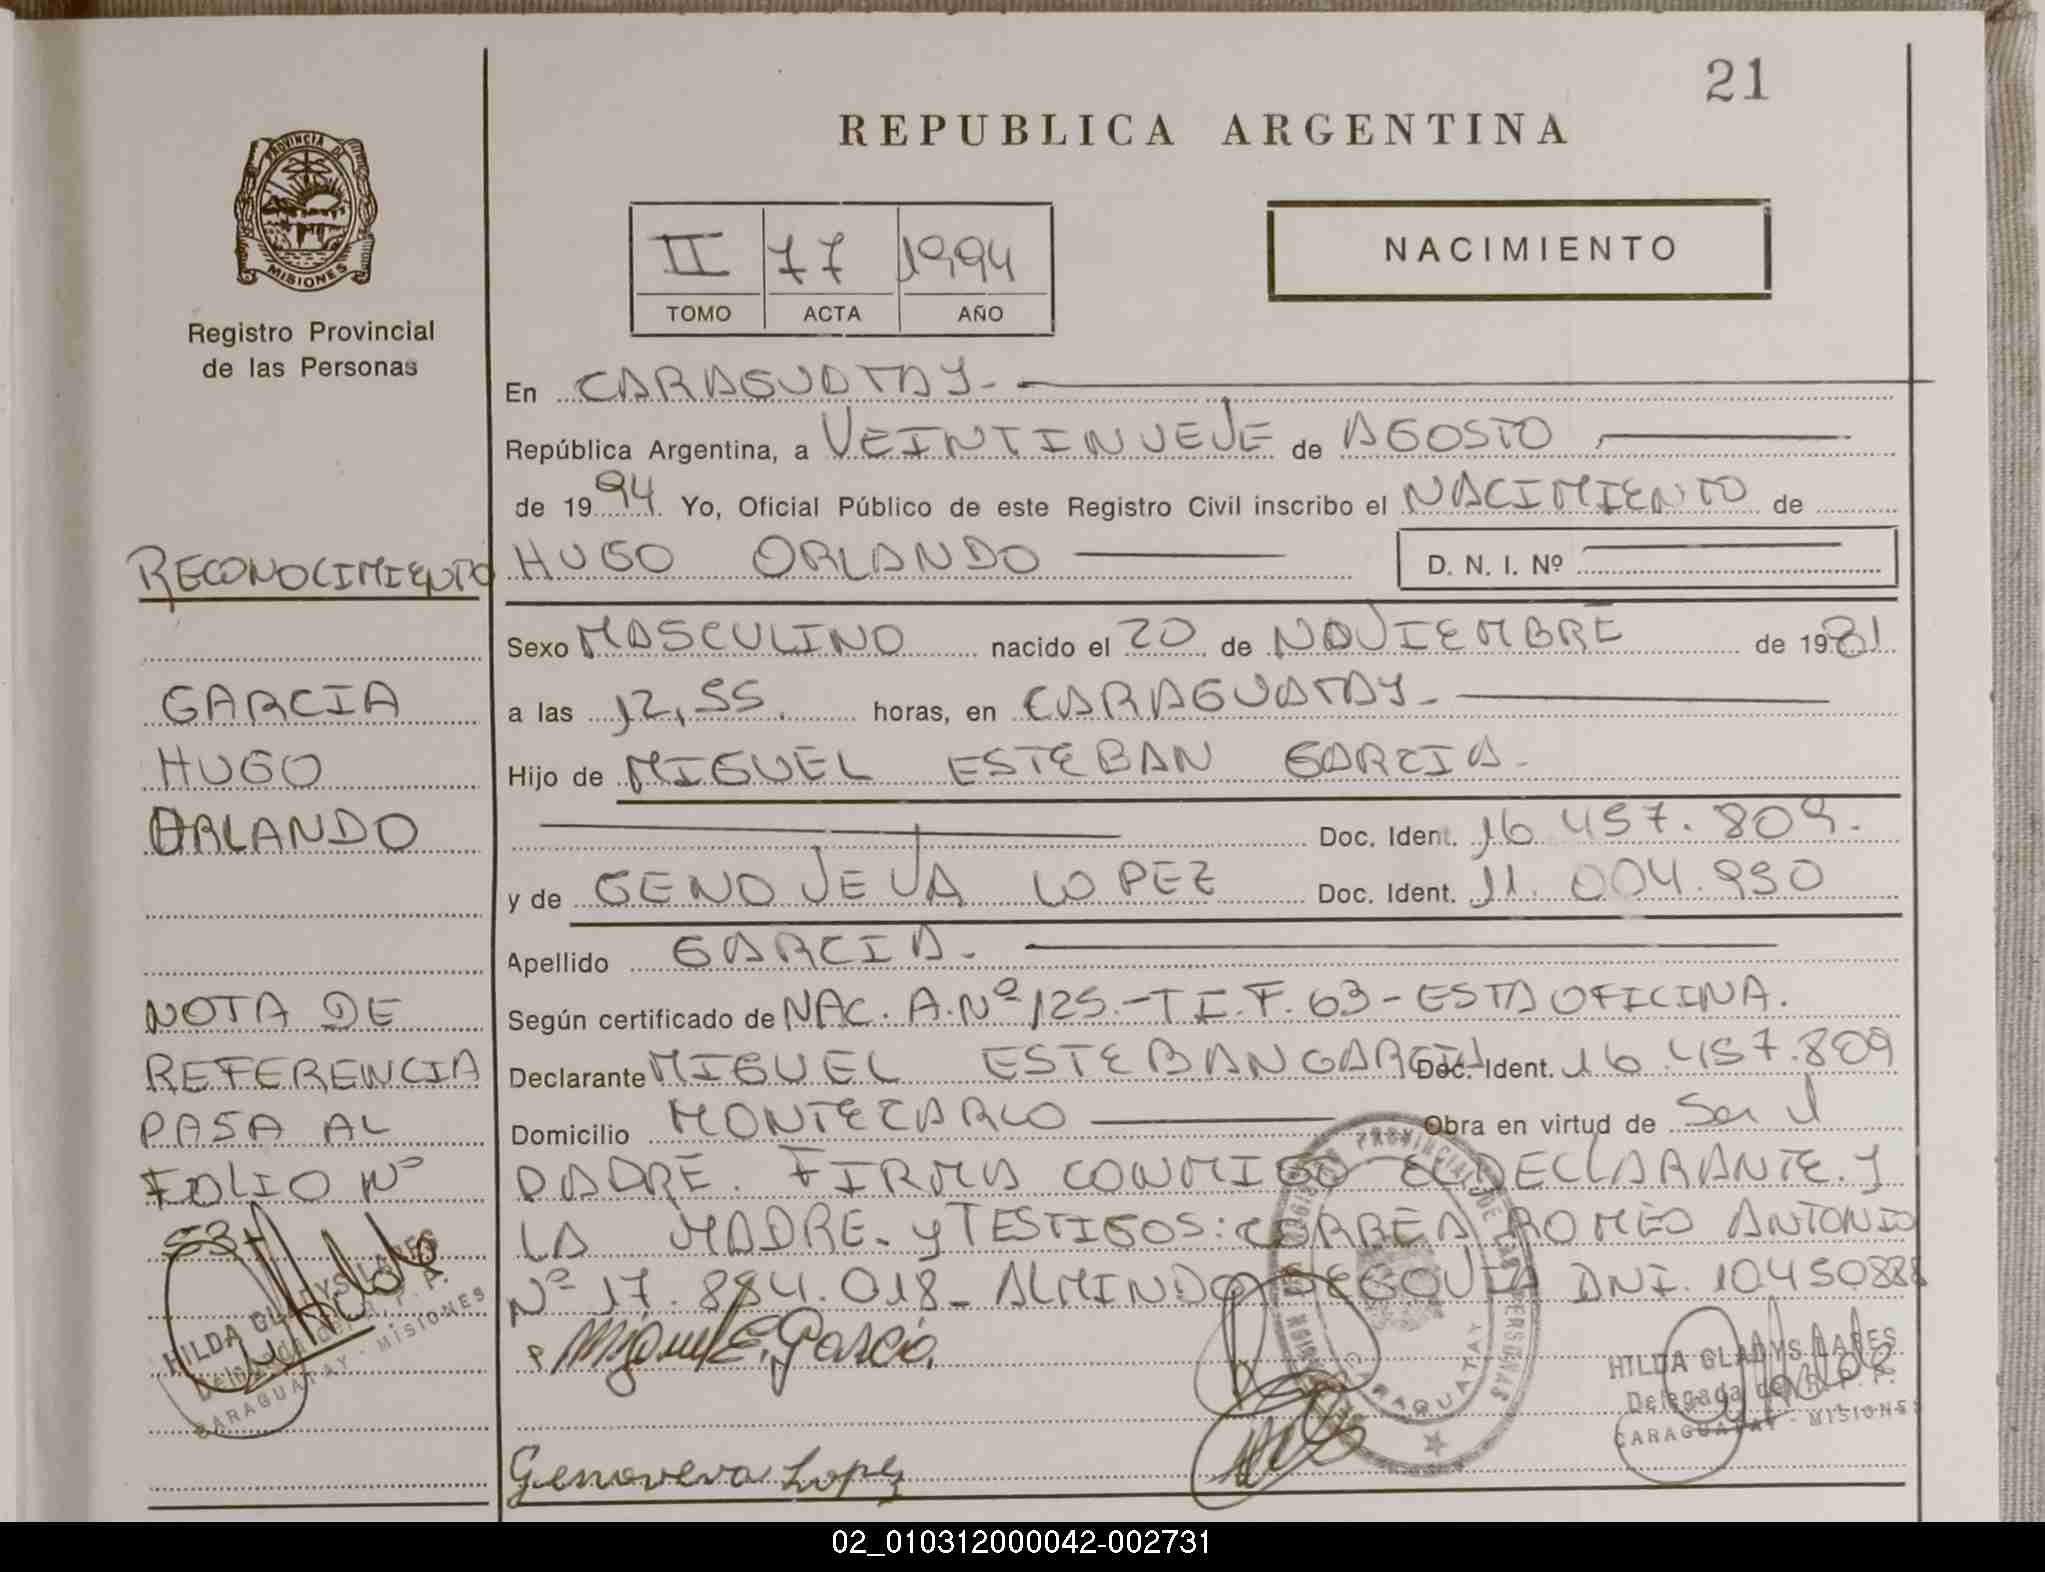 21
REPUBLICA ARGENTINA
PROVINCIA DE
MISIONES
Registro Provincial
de las Personas
II 77 1994
TOMO ACTA AÑO
NACIMIENTO
En CARAGUATAY.
República Argentina, a VEINTINUEVE de AGOSTO
de 1994 Yo, Oficial Público de este Registro Civil inscribo el NACIMIENTO de
HUGO ORLANDO D. N. I. Nº
Sexo MASCULINO nacido el 20 de NOVIEMBRE de 1981
a las 12,55 horas, en CARAGUATAY.
Hijo de MIGUEL ESTEBAN GARCIA.
Doc. Ident. 16.457.809.
y de GENOVEVA LOPEZ Doc. Ident. 11.004.990
Apellido GARCIA.
Según certificado de NAC. A.Nº 125.-T I.F. 63-ESTA OFICINA.
Declarante MIGUEL ESTEBAN GARCIA Doc. Ident. 16.457.809
Domicilio MONTECARLO Obra en virtud de Ser el
PADRE. FIRMA CONMIGO EL DECLARANTE. Y
LA MADRE. y TESTIGOS: CORREA ROMEO ANTONIO
Nº 17.894.018_ ALMINDO SEGOVIA DNI. 10450888
Miguel E. Garcia
Genoveva Lopez
CARAGUATAY
HILDA GLADYS LARES
Delegada del R. P. P.
CARAGUATAY - MISIONES
RECONOCIMIENTO
GARCIA
HUGO
ORLANDO
NOTA DE
REFERENCIA
PASA AL
FOLIO Nº
53
HILDA GLADYS LARES
Delegada del R. P. P.
CARAGUATAY - MISIONES
02_010312000042-002731